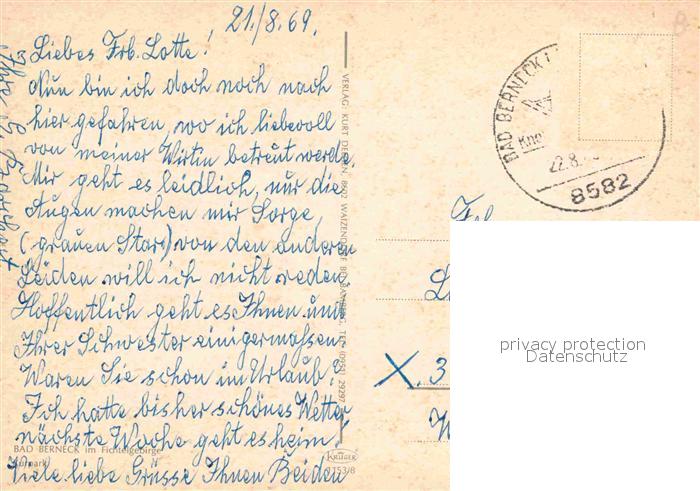 21./8.69.
Liebes Frl. Lotte!
Nun bin ich doch noch nach
hier gefahren, wo ich liebevoll
von meiner Wirtin betreut werde.
Mir geht es leidlich, nur die
Augen machen mir Sorge,
(grauen Star) von den anderen
Leiden will ich nicht reden.
Hoffentlich geht es Ihnen und
Ihrer Schwester einigermassen.
Waren Sie schon im Urlaub?
Ich hatte bisher schönes Wetter,
nächste Woche geht es heim.
Viele liebe Grüsse Ihnen Beiden
Ihre
BAD BERNECK im Fichtelgebirge
VERLAG KURT
KRÜGER
153/8
BAD BERNECK i
Kne
22.8.
8582
Frl.
X. 3
W
privacy protection
Datenschutz